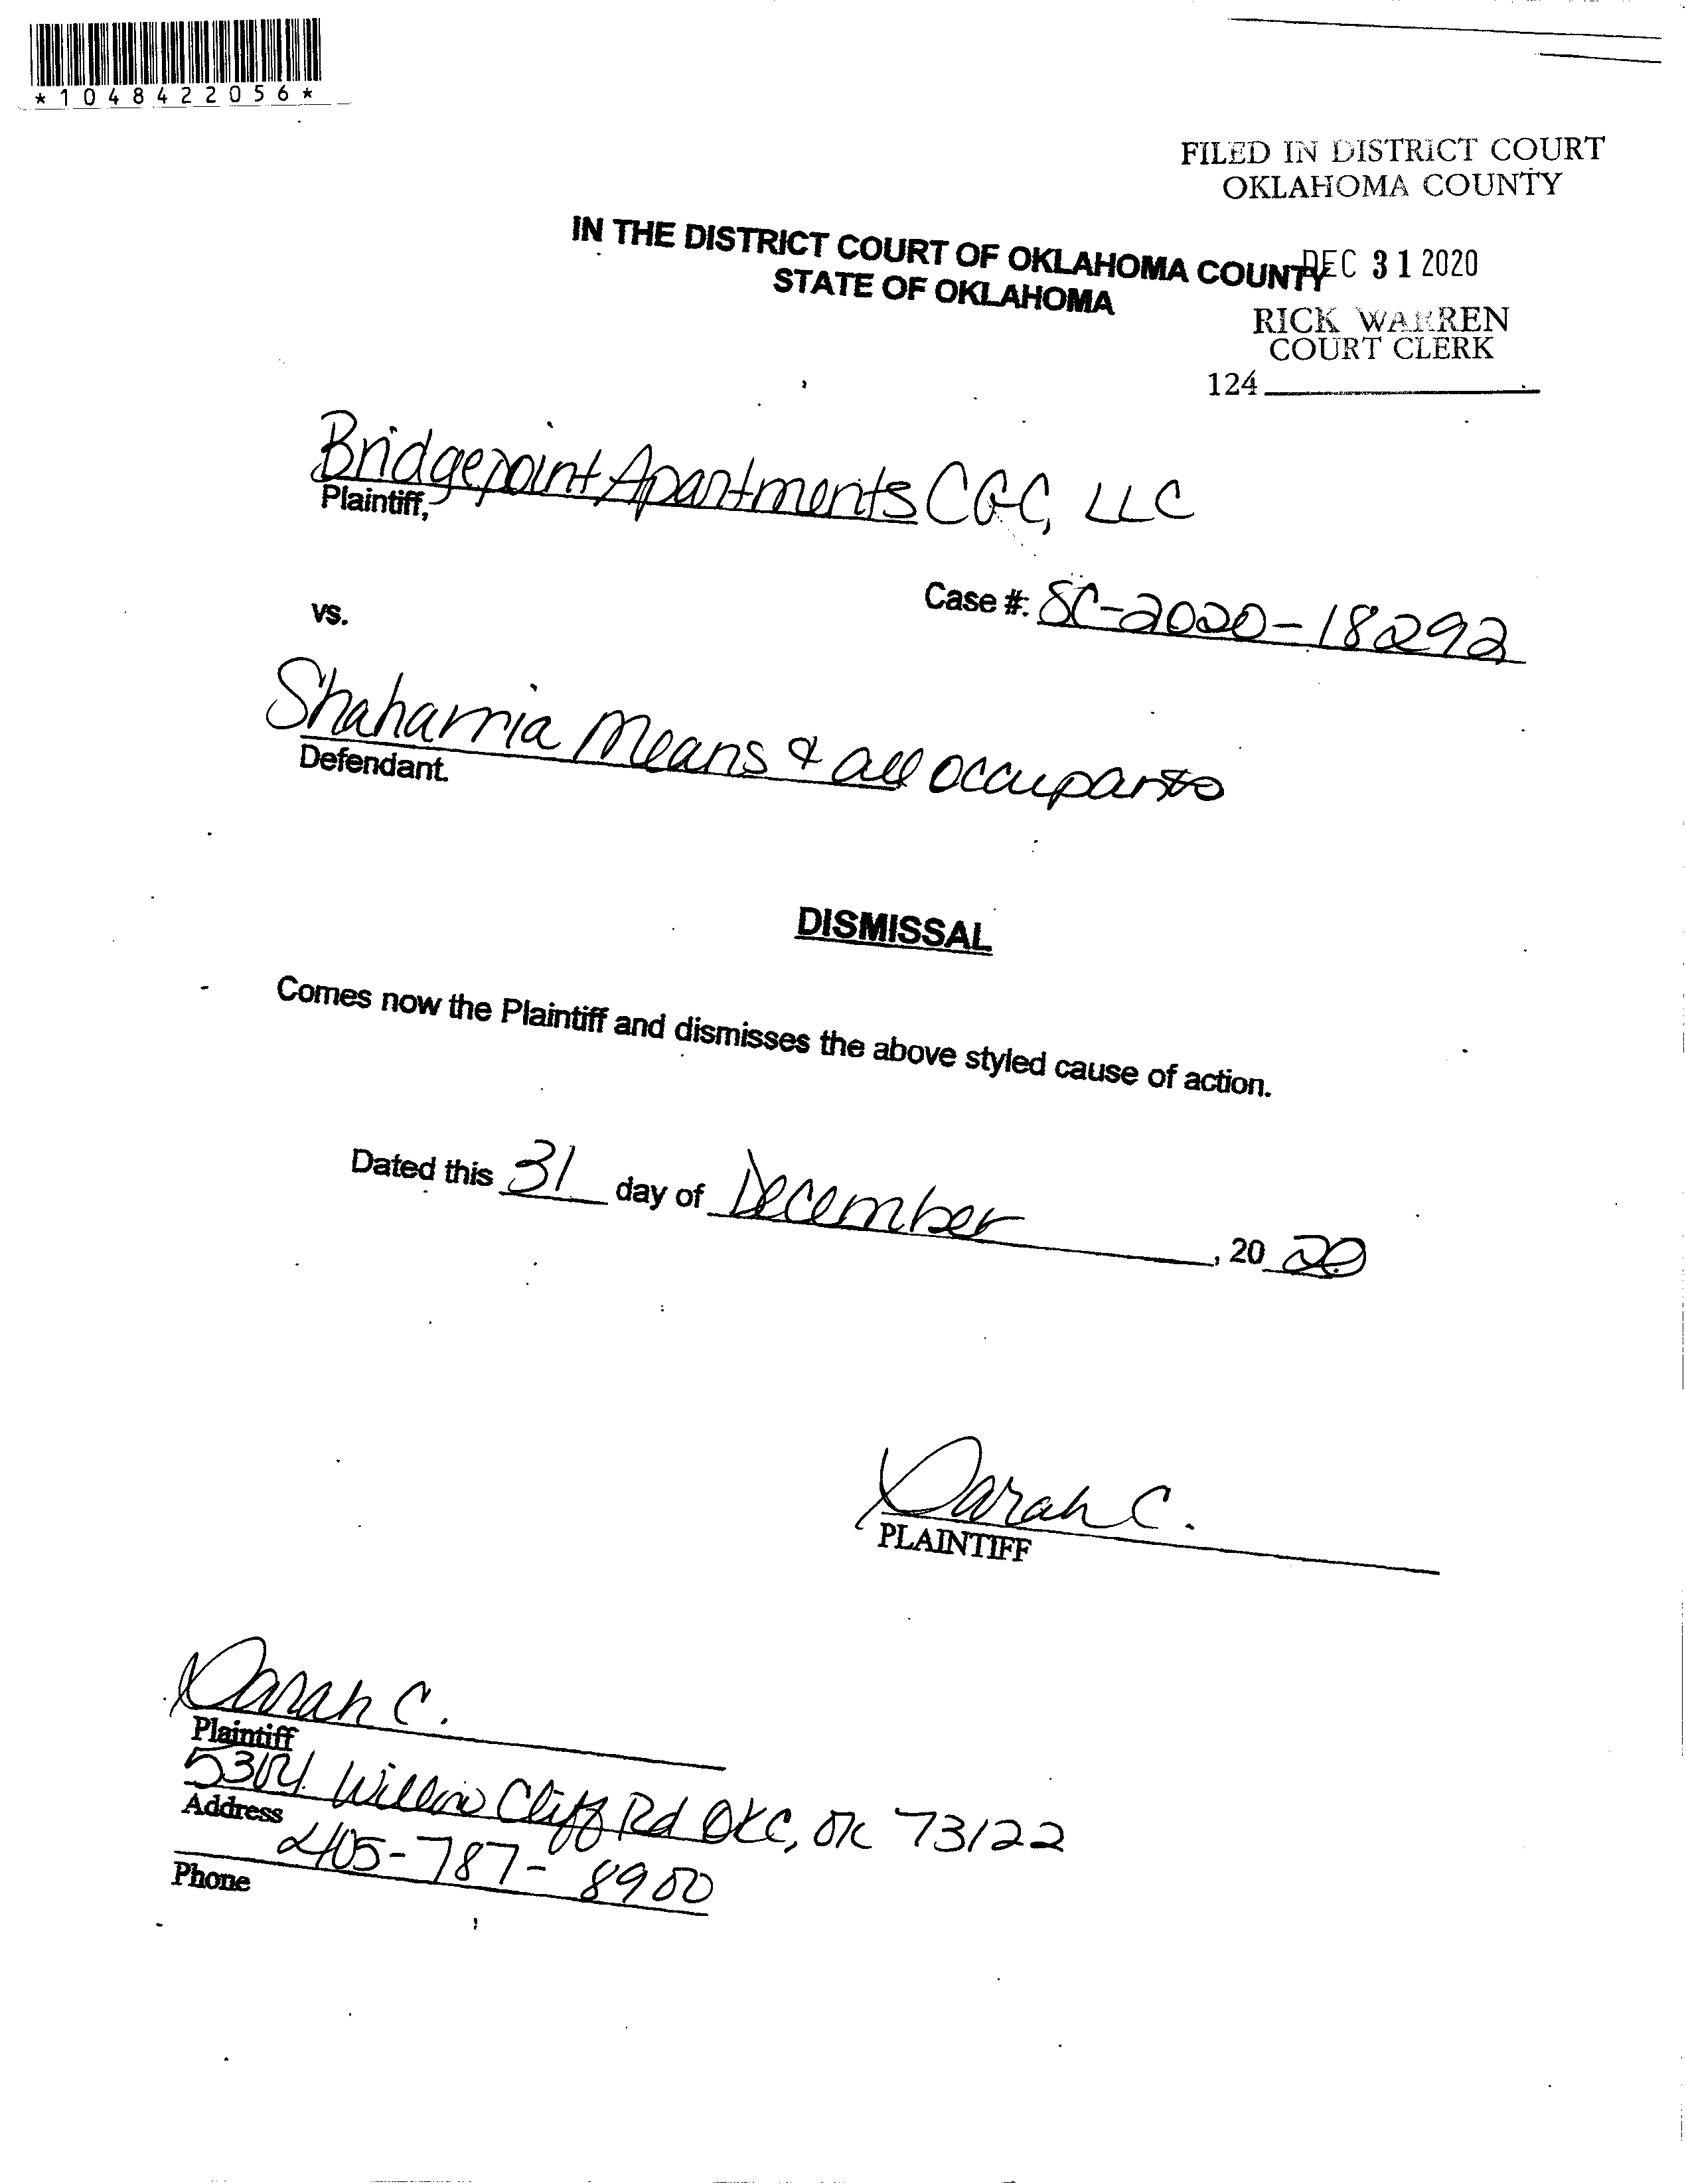 *1048422056*
FILED IN DISTRICT COURT
OKLAHOMA COUNTY
IN THE DISTRICT COURT OF OKLAHOMA COUNTY
STATE OF OKLAHOMA
DEC 31 2020
RICK WARREN
COURT CLERK
124
Bridgepoint Apartments CGC, LLC
Plaintiff,
vs.
Case #: SC-2020-18292
Shaharria Means & all occupants
Defendant.
DISMISSAL
Comes now the Plaintiff and dismisses the above styled cause of action.
Dated this 31 day of December, 2020
Sarah C.
PLAINTIFF
Sarah C.
Plaintiff
Willow Cliff Rd OKC, OK 73122
Address
405-787-8900
Phone